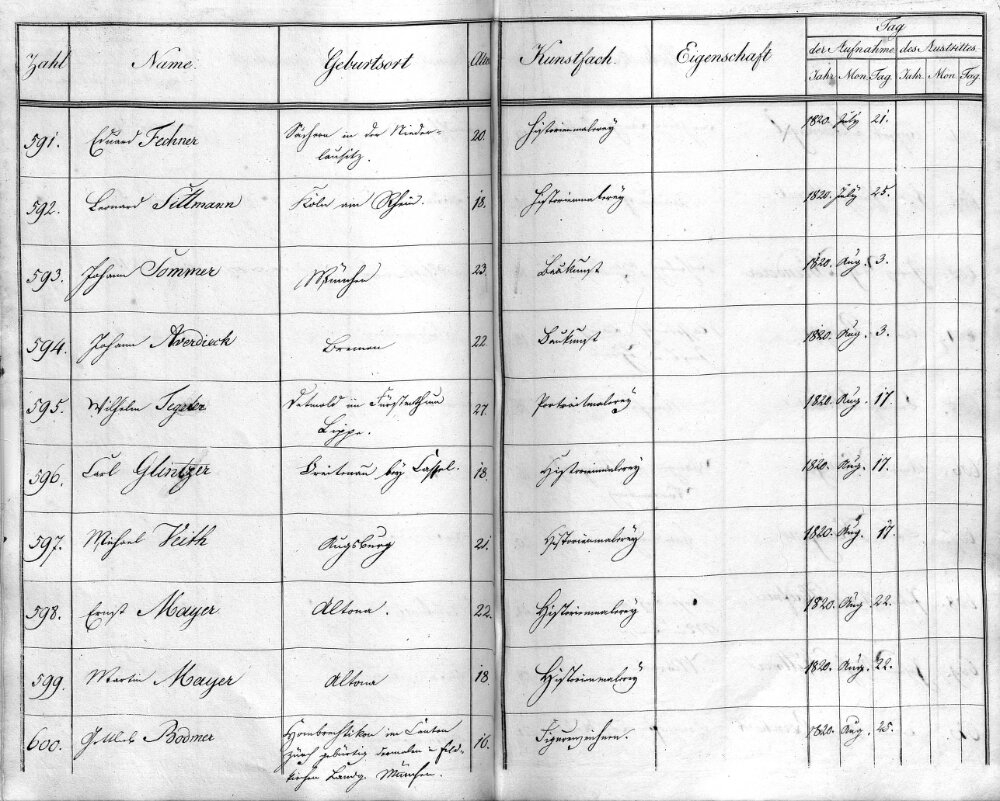 Tag
Zahl Name. Geburtsort Alter Kunstfach. Eigenschaft der Aufnahme des Austrittes.
Jahr. Mon. Tag Jahr. Mon. Tag.
591. Eduard Fechner Sachsen in der Nieder- 20. Historienmalerey 1820. July 21.
lausitz.
592. Leonard Tillmann Köln am Rhein. 18. Historienmalerey 1820. July 25.
593. Johann Sommer München 23. Baukunst 1820. Aug. 3.
594. Johann Averdieck Bremen 22. Baukunst 1820. Aug. 3.
595. Wilhelm Detmold im Fürstenthum 27. Portraitmalerey 1820. Aug. 17.
Lippe.
596. Carl Glintzer Breitenau bey Cassel. 18. Historienmalerey 1820. Aug. 17.
597. Michael Veith Augsburg 21. Historienmalerey 1820. Aug. 17.
598. Ernst Mayer Altona. 22. Historienmalerey 1820. Aug. 22.
599. Martin Mayer Altona 18. Historienmalerey 1820. Aug. 22.
600. Gottlieb Bodmer Hombrechtikon im Canton 16. Figurenzeichnen. 1820. Aug. 25.
Zürch gebürtig dermalen in Feld-
kirchen Landg. München.